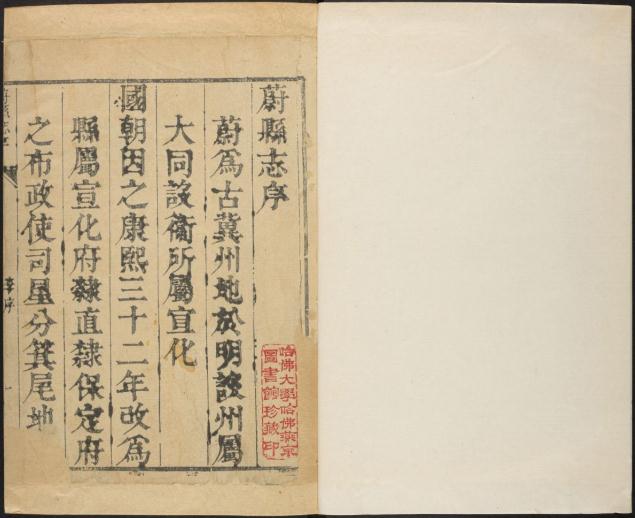 蔚縣志序
蔚為古冀州地於明設州屬
大同設衞所屬宣化
國朝因之康熙三十二年改為
縣屬宣化府隸直隸保定府
之布政使司星分箕尾地
哈佛大學哈佛燕京
圖書館珍藏印